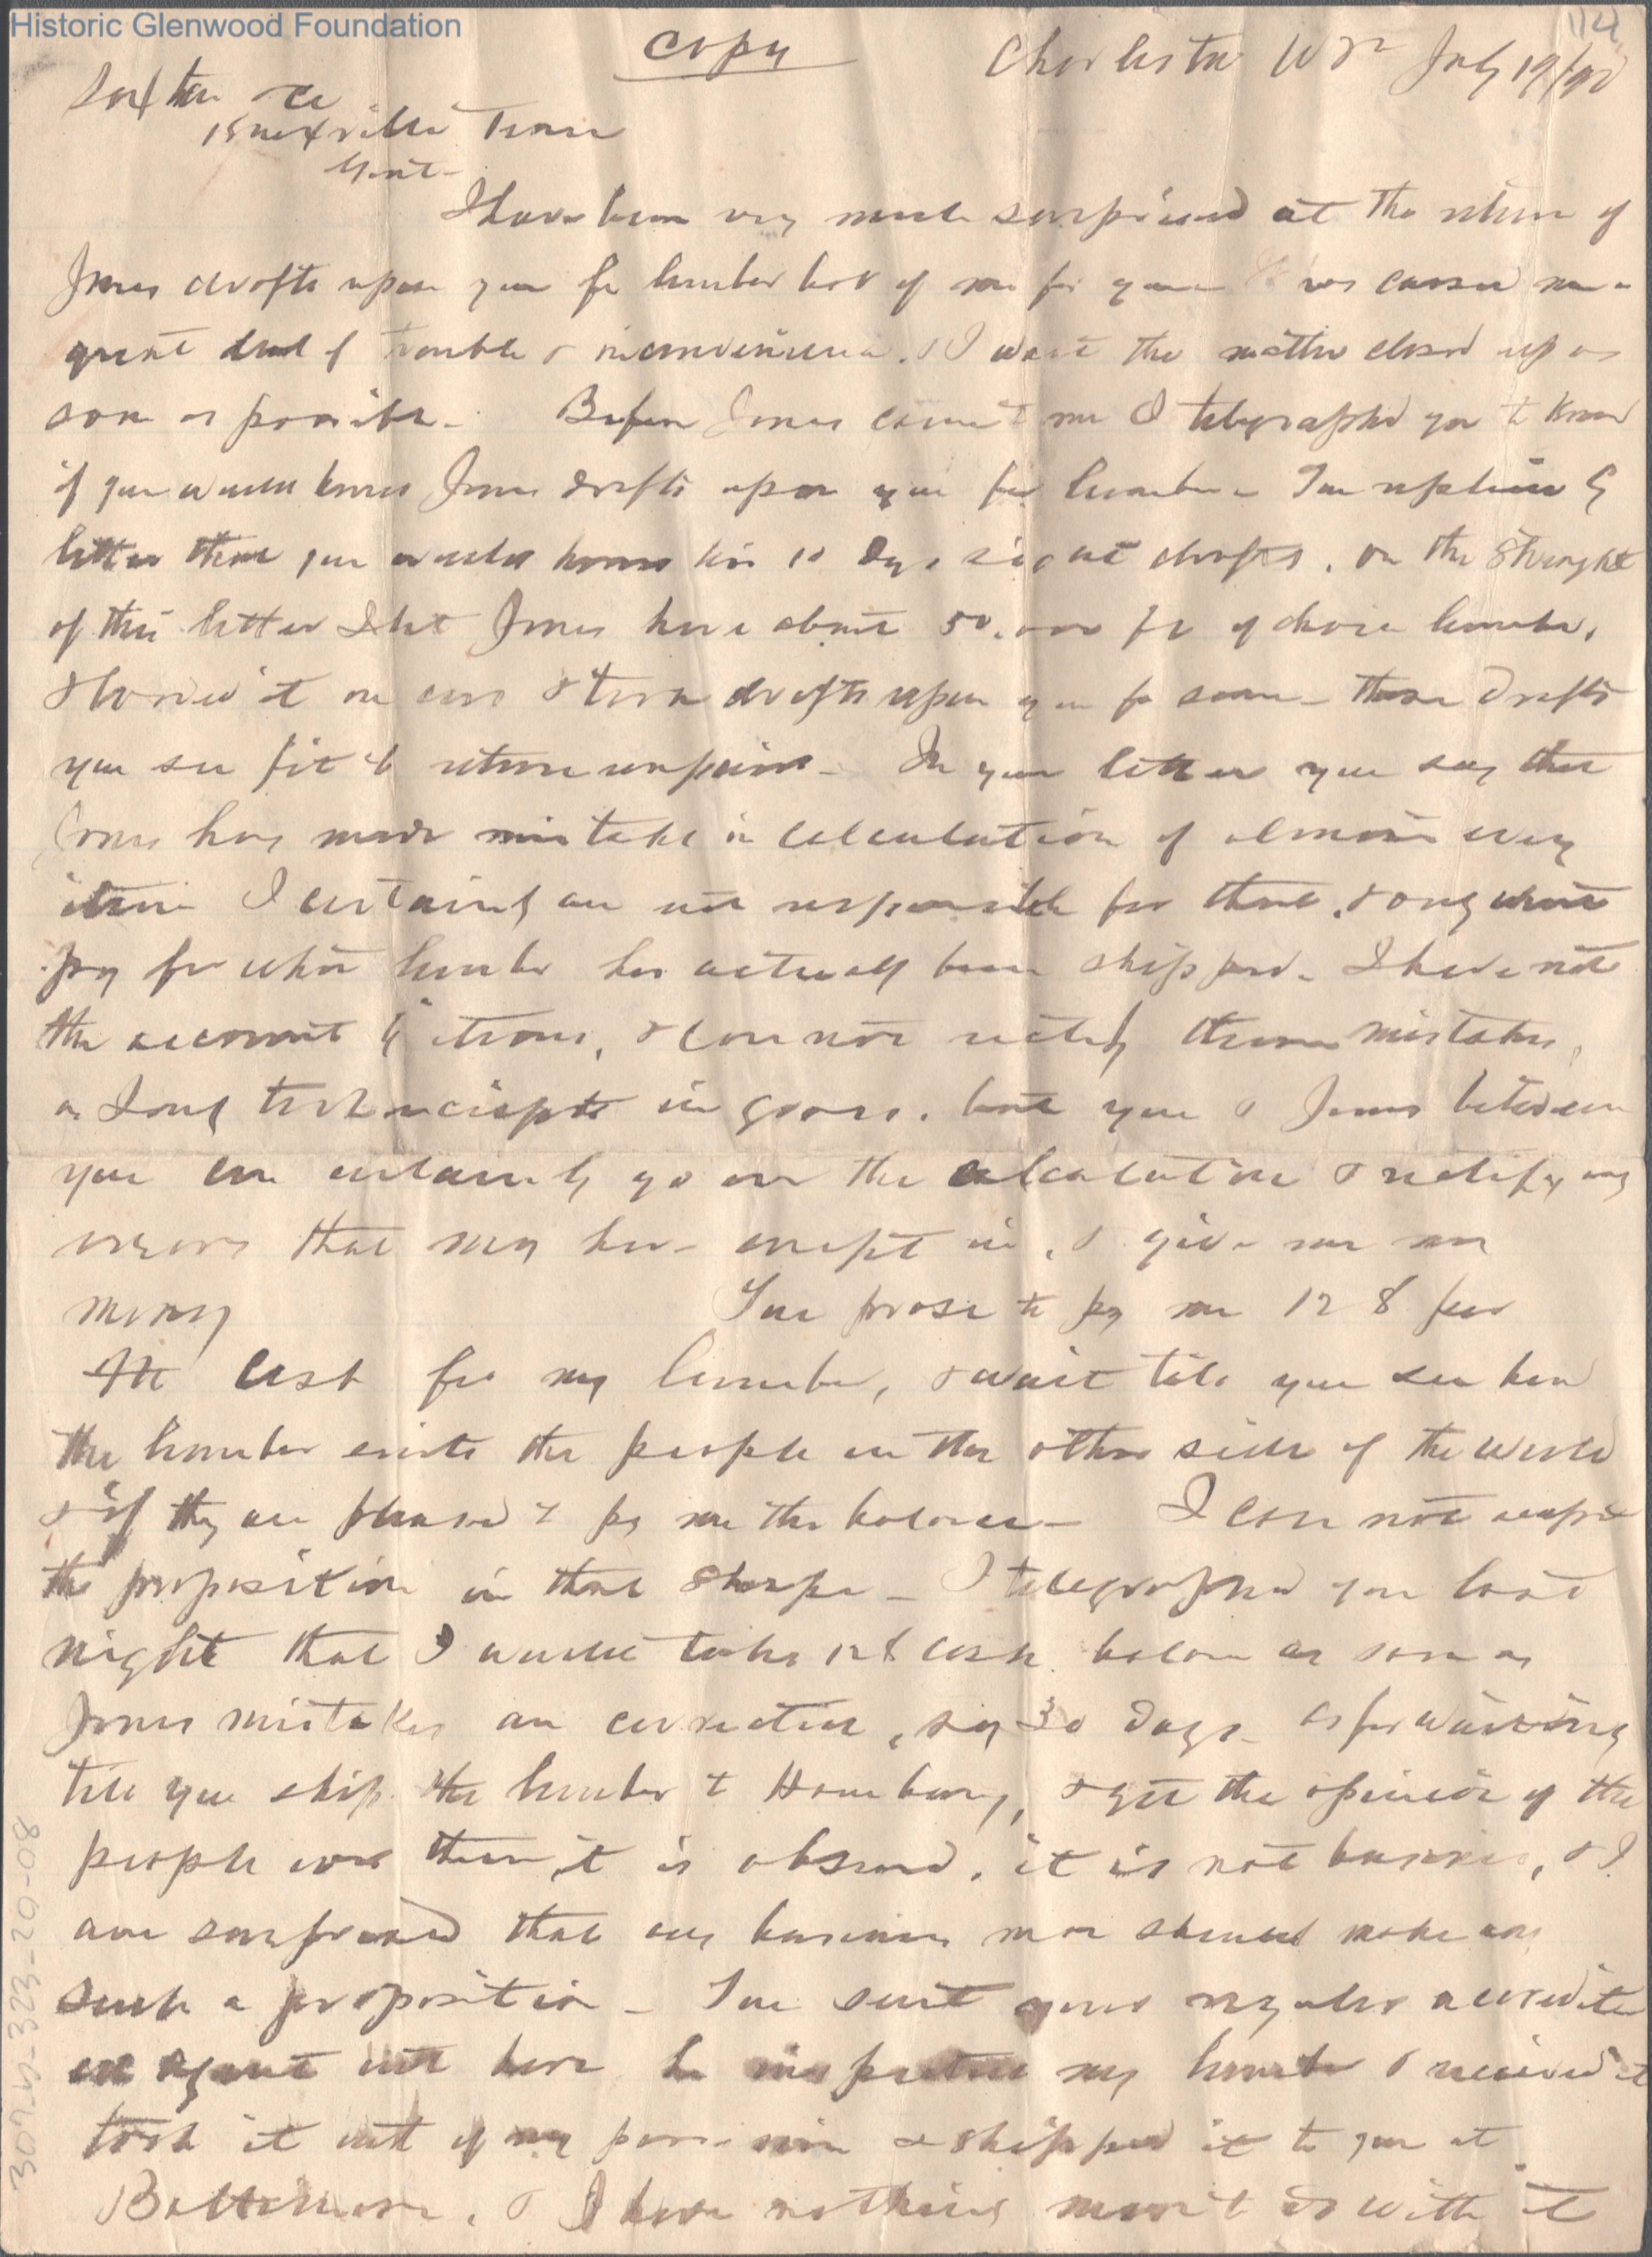 Historic Glenwood Foundation
114
Copy
Charleston W Va July 19/90
Saxton & Co
Knoxville Tenn
Gents-
I have been very much surprised at the return of
Jones drafts upon you for lumber bot of me for you has caused me a
great deal of trouble & inconvenience. & I want the matter closed up as
soon as possible- Before Jones came to me I telegraphed you to know
if you would honor Jones drafts upon you for lumber- You replied by
letter that you would honor his 10 Days sight drafts. on the strenght
of this letter I let Jones have about 50,000 ft of choice lumber,
& loaded it on cars & took drafts upon you for same- these drafts
you see fit to return unpaid- In your letter you say that
Jones has made mistake in calculation of almost every
item I certainly am not responsible for that, & only want
pay for what lumber has actually been shipped- I have not
the account by items, & can not rectify these mistakes,
as I only took receipts in gross. but you & Jones between
you can certainly go over the calculation & rectify any
errors that may have crept in, & give me my
money You propose to pay me 12 8 per
M cash for my lumber, & wait till you see how
the lumber suits the people on the other side of the world
& if they are pleased to pay me the balance- I can not accept
the proposition in that shape- I telegraphed you last
night that I would take 128 cash balance as soon as
Jones mistakes are corrected, say 30 days- as for waiting
till you ship the lumber to Hamburg, & get the opinion of the
people over there it is absurd. it is not business, & I
am surprised that any business man should make any
such a proposition- You sent your regular accredited
agent out here he inspected my lumber & received it
took it out of my possession & shipped it to you at
Baltimore. & I have nothing more to do with it
307-19-323-20-08